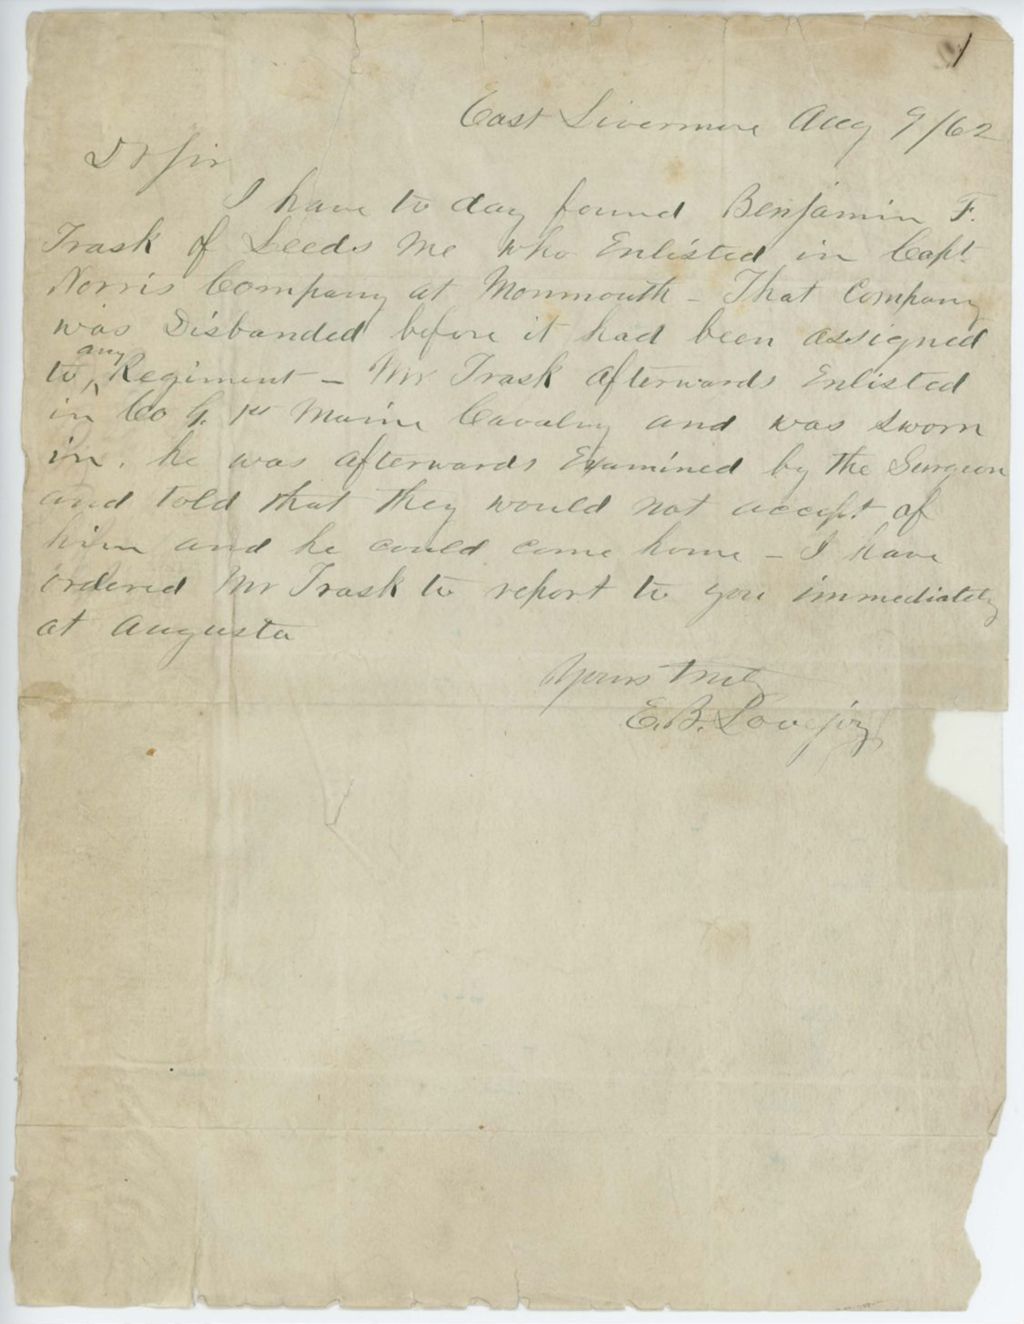 East Livermore Aug 9/62
Dr Sir
I have to day found Benjamin F.
Trask of Leeds Me who Enlisted in Capt
Norris Company at Monmouth - That Company
was Disbanded before it had been assigned
to any Regiment - Mr Trask afterwards Enlisted
in Co G. 1st Maine Cavalry and was sworn
in. he was afterwards Examined by the Surgeon
and told that they would not accept of
him and he could come home - I have
ordered Mr Trask to report to you immediately
at Augusta
Yours truly
E. B. Lovejoy